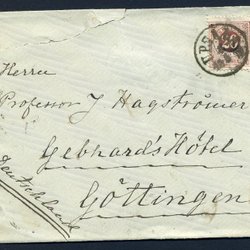 UPSA
20
Herrn
Professor J Hagströmer
Gebhard's Hôtel
Göttingen
Deutschland